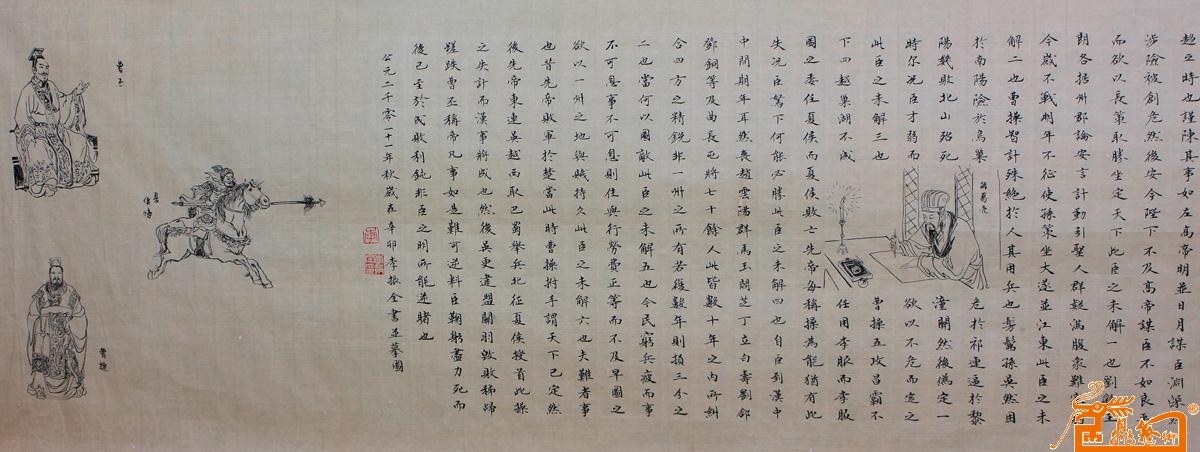 趨之時也謹陳其事如左高帝明並日月謀臣淵深
涉險被創危然後安今陛下不及高帝謀臣不如良
而欲以長策取勝坐定天下此臣之未解一也劉繇王
朗各據州郡論安言計動引聖人群疑滿腹衆難
今歲不戰明年不征使孫策坐大遂並江東此臣之未
解二也曹操智計殊絕於人其用兵也髣髴孫吳然困
於南陽險於烏巢
諸葛亮
危於祁連逼於黎
陽幾敗北山殆死
潼關然後偽定一
時尔況臣才弱而
欲以不危而定之
此臣之未解三也
曹操五攻昌霸不
下四越巢湖不成
任用李服而李服
圖之委任夏侯而夏侯敗亡先帝每稱操為能猶有此
失況臣駑下何能必勝此臣之未解四也自臣到漢中
中間期年耳然喪趙雲陽群馬玉閻芝丁立白壽劉郃
鄧銅等及曲長屯將七十餘人此皆數十年之內所糾
合四方之精銳非一州之所有若復數年則損三分之
二也當何以圖敵此臣之未解五也今民窮兵疲而事
不可息事不可息則住與行勞費正等而不及早圖之
欲以一州之地與賊持久此臣之未解六也夫難者事
也昔先帝敗軍於楚當此時曹操拊手謂天下已定然
後先帝東連吳越西取巴蜀舉兵北征夏侯授首此操
之失計而漢事將成也然後吳更違盟關羽毀敗秭歸
蹉跌曹丕稱帝凡事如是難可逆料臣鞠躬盡力死而
後已至於成敗利鈍非臣之明所能逆睹也
公元二千零一十一年秋歲在辛卯李振全書並摹圖
曹丕
曹操